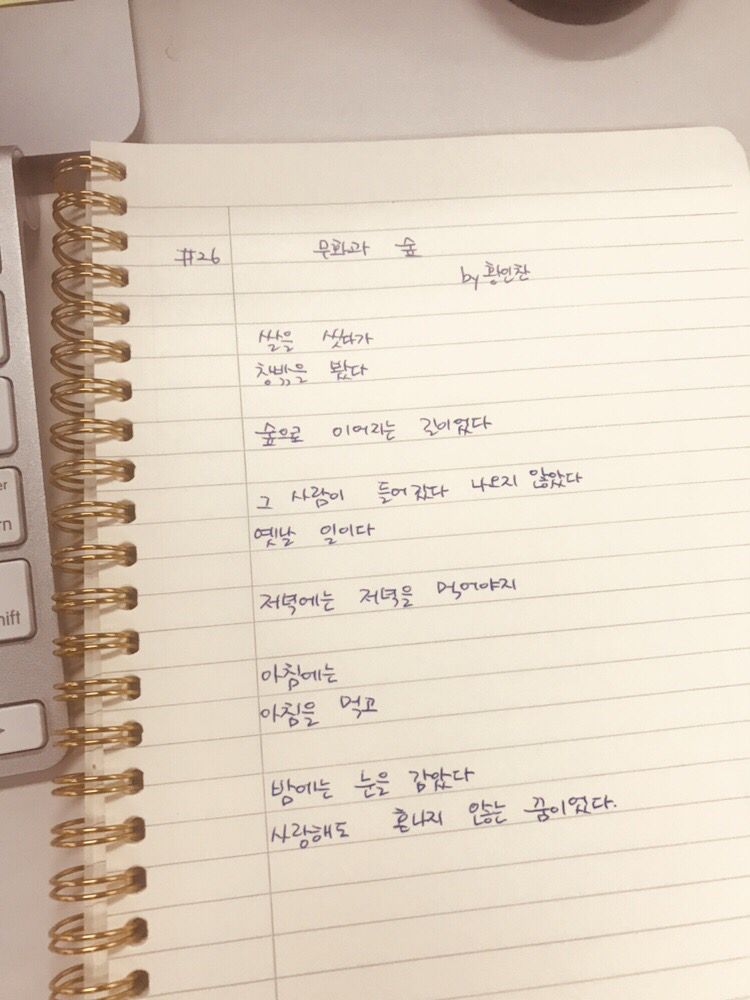 #26 무화과 숲
by 황인찬
쌀을 씻다가
창밖을 봤다
숲으로 이어지는 길이었다
그 사람이 들어갔다 나오지 않았다
옛날 일이다
저녁에는 저녁을 먹어야지
아침에는
아침을 먹고
밤에는 눈을 감았다
사랑해도 혼나지 않는 꿈이었다.
hift